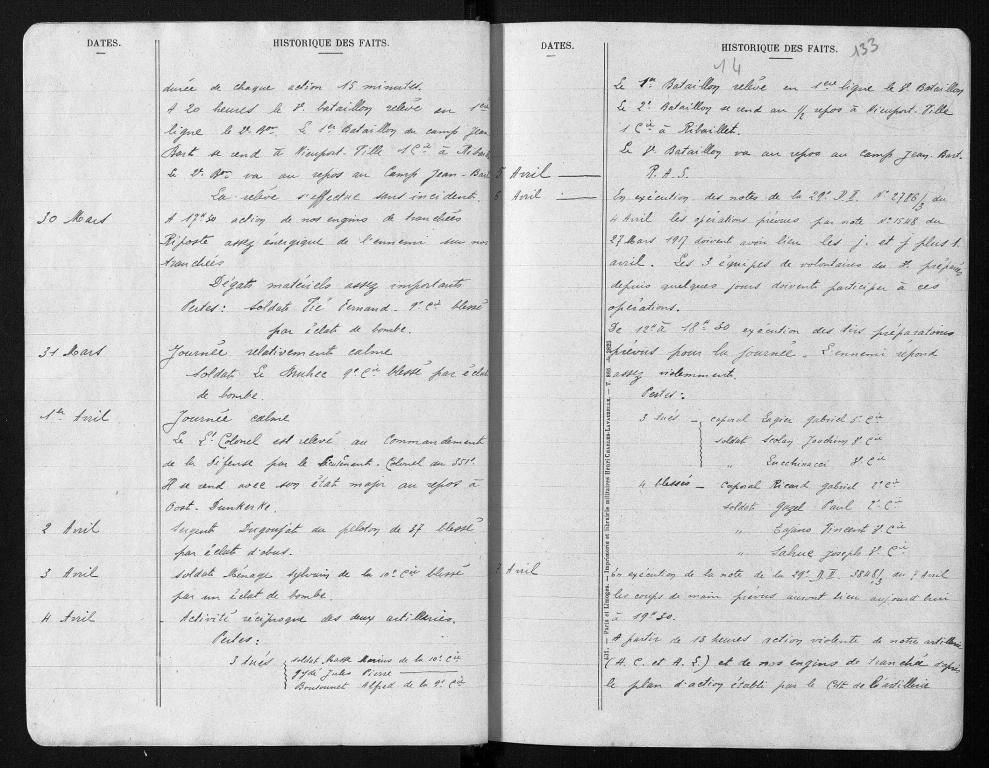 DATES.
HISTORIQUE DES FAITS.
durée de chaque action 15 minutes.
A 20 heures le bataillon relève en 1ère
ligne le Bon. Le 1er Bataillon du camp Jean
Bart se rend à Nieuport-Ville 1 Cie à
Le Bon va au repos au Camp Jean-Bart
La relève s'effectue sans incident.
30 Mars
A 17h30 action de nos engins de tranchées
Riposte assez énergique de l'ennemi sur nos
tranchées
Dégats matériels assez importants
Pertes: soldat Fernand. 9e Cie blessé
par éclat de bombe.
31 Mars
Journée relativement calme
Soldat Le 9e Cie blessé par éclat
de bombe.
1er Avril
Journée calme
Le Lt Colonel est relevé au Commandement
de la Défense par le Lieutenant-Colonel du 351e
Il se rend avec son état major au repos à
Oost-Dunkerke.
2 Avril
Sergent du peloton de 37 blessé
par éclat d'obus.
3 Avril
soldat Ménage Sylvain de la 10e Cie blessé
par un éclat de bombe.
4 Avril
Activité réciproque des deux artilleries.
Pertes:
3 tués
soldat Marius de la 10e Cie
Jules Pierre
Boutonnet Alfred de la 9e Cie
DATES.
HISTORIQUE DES FAITS.
133
14
Le 1er Bataillon relève en 1ère ligne le Bataillon
Le 2e Bataillon se rend au 1/2 repos à Nieuport-Ville
1 Cie à Ribaillet.
Le Bataillon va au repos au camp Jean-Bart.
5 Avril
R.A.S.
6 Avril
En exécution des notes de la 29e D.I. N° 2786/3 du
4 Avril les opérations prévues par note N° 1548 du
27 Mars 1917 doivent avoir lieu les j. et j plus 1.
avril. Les 3 équipes de volontaires du préparées
depuis quelques jours doivent participer à ces
opérations.
De 12h à 18h30 exécution des tirs préparatoires
prévus pour la journée. L'ennemi répond
assez violemment.
Pertes:
3 tués - caporal Gabriel Cie
soldat Joachim Cie
" Cie
4 blessés - caporal Ricard Gabriel Cie
soldat Paul Cie
" Vincent Cie
" Joseph Cie
7 Avril
En exécution de la note de la 29e D.I. 3848/3 du 7 Avril
les coups de main prévus auront lieu aujourd'hui
à 19h30.
A partir de 13 heures action violente de notre artillerie
(A.C. et A.L.) et de nos engins de tranchée d'après
le plan d'action établi par le Cdt de l'artillerie
431. — Paris et Limoges. — Imprimerie et librairie militaires Henri CHARLES-LAVAUZELLE.